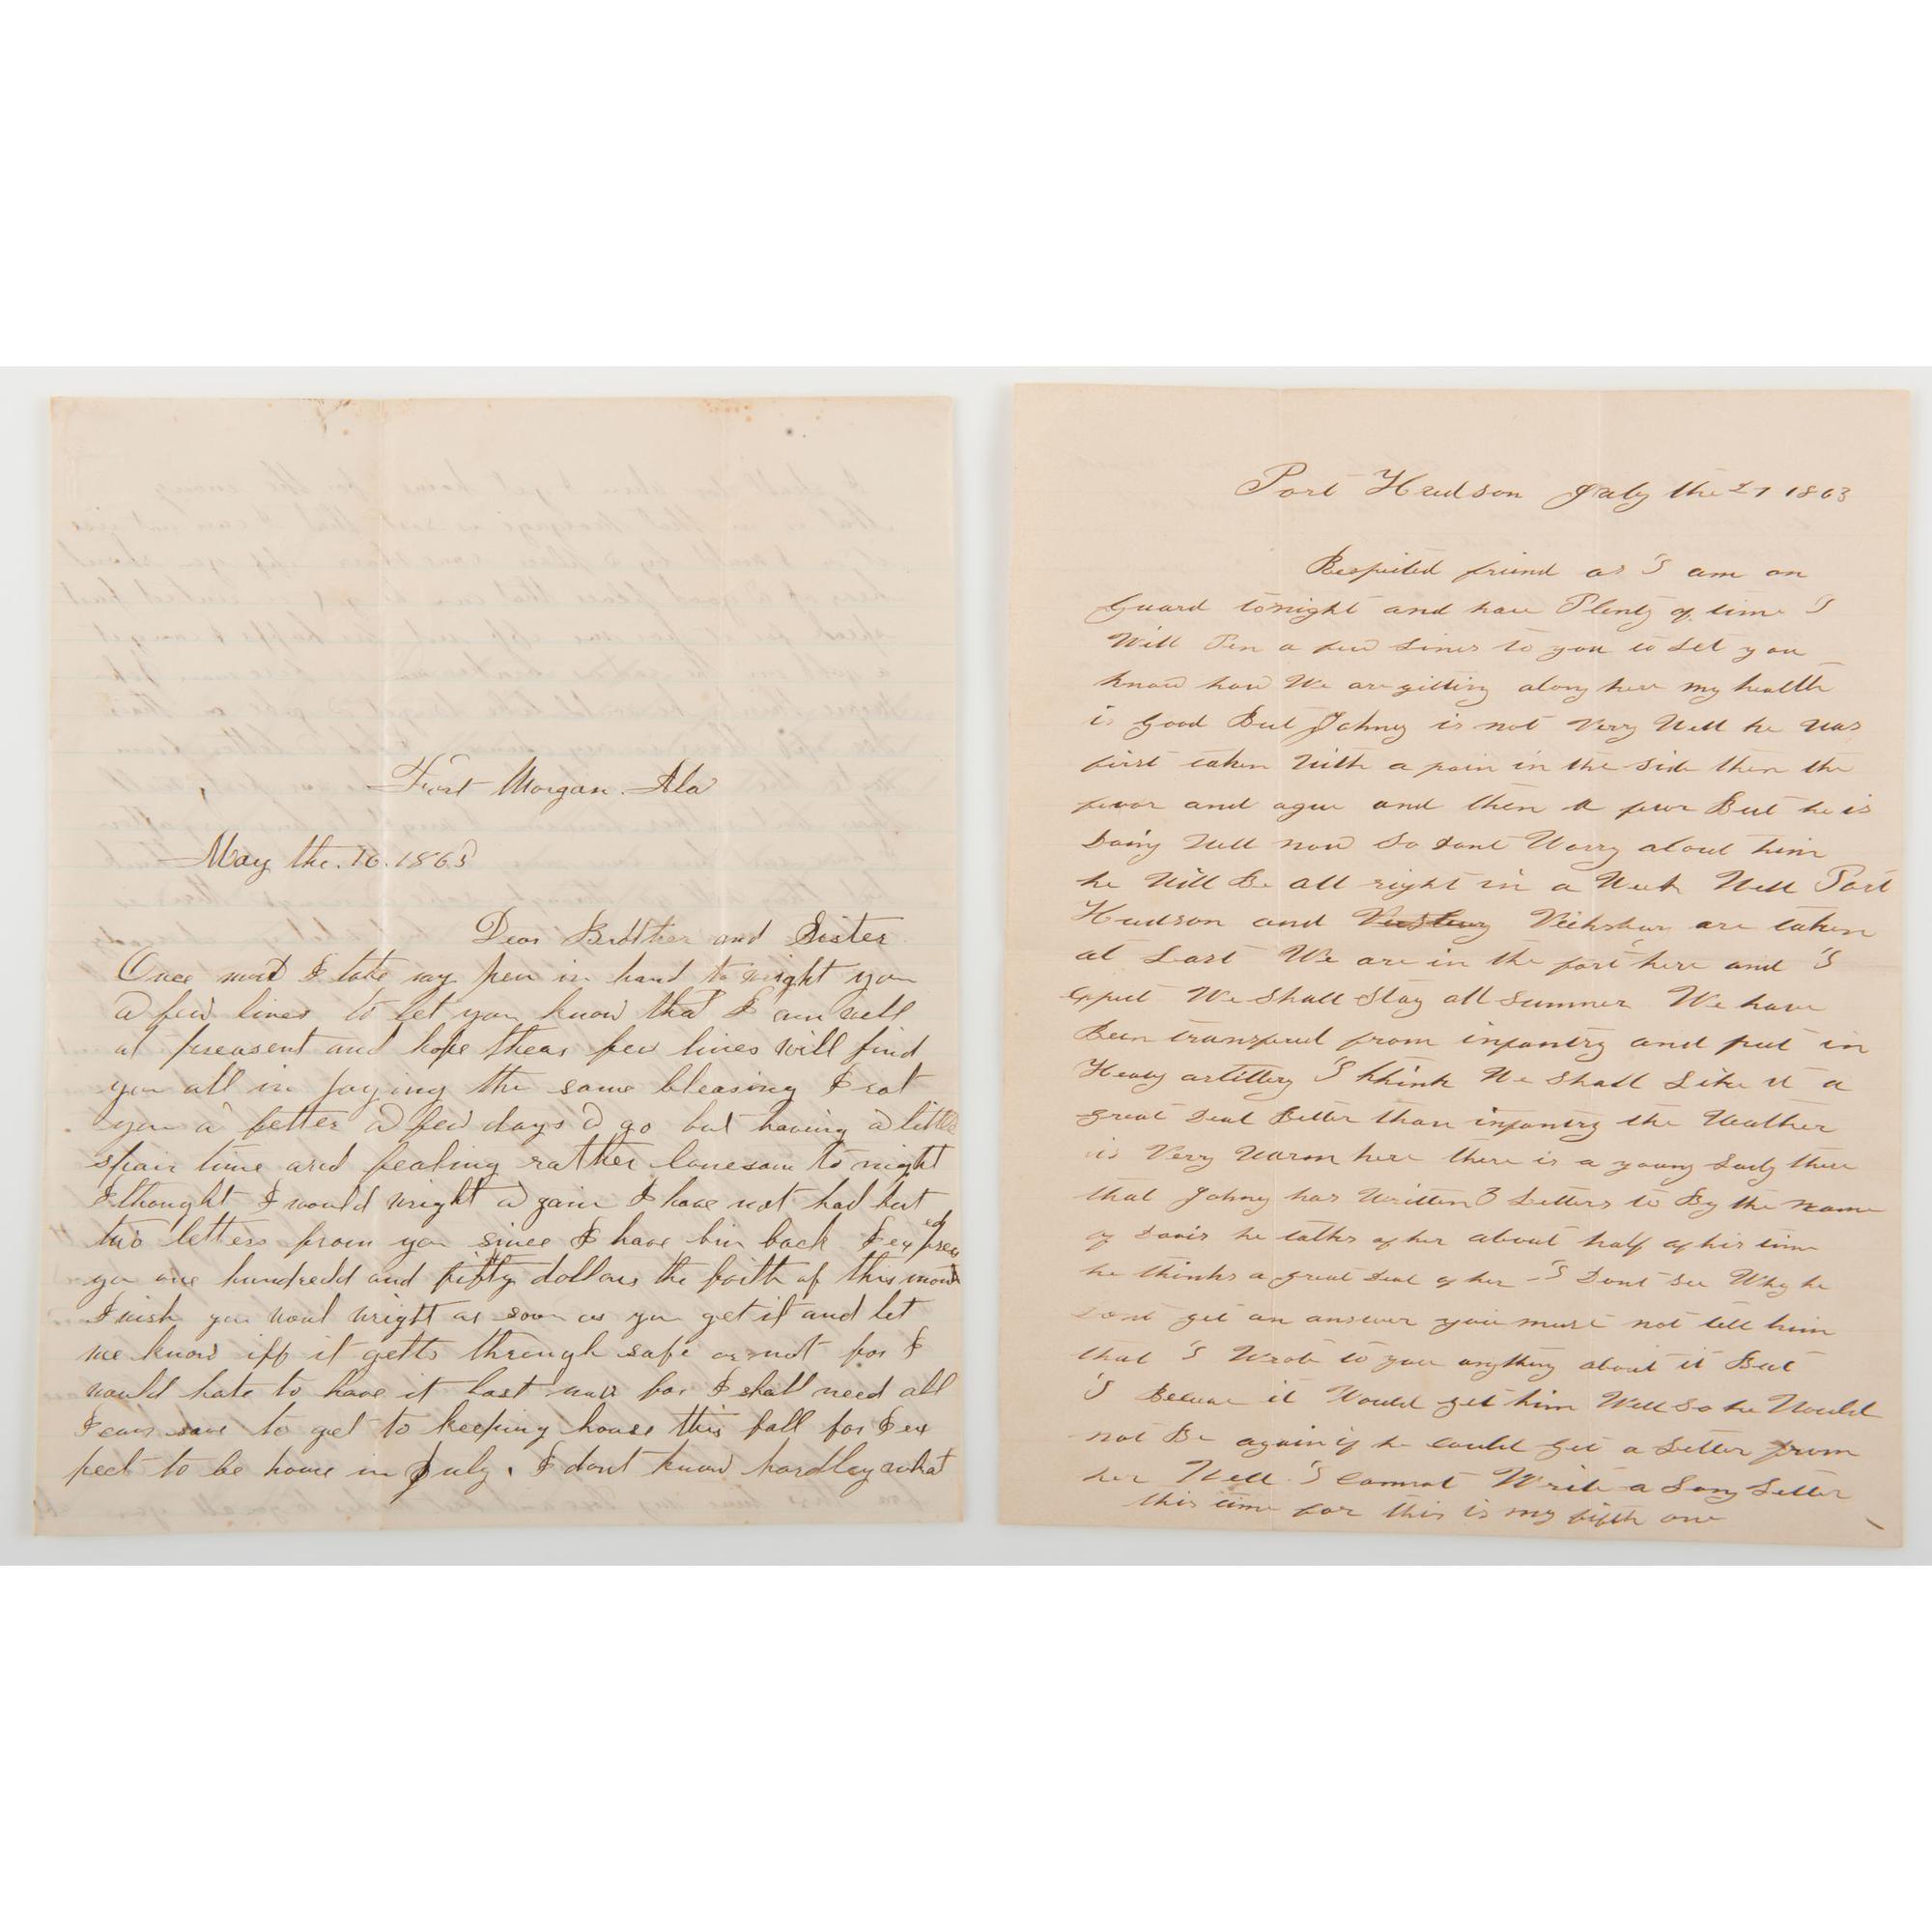 Fort Morgan. Ala
May the. 16. 1865
Dear Brother and Sister
Once mor I take my pen in hand to wright you
a few lines to let you know that I am well
at preasent and hope theas few lines will find
you all in joying the same bleasing I rot
you a letter a few days a go but having a little
spair time and fealing rather lonesom to night
I thought I would wright a gain I have not had but
two letters from you since I have bin back I ex presed
you one hundredd and fifty dollars the foith of this month
I wish you woul wright as soon as you get it and let
me know iff it getts through safe or not for I
would hate to have it lost now for I shall need all
I can save to get to keeping house this fall for I ex
pect to be home in July. I dont know hardley what
Port Hudson July the 27 1863
Respited friend as I am on
Guard tonight and have Plenty of time I
Will Pen a few Lines to you to Let you
know how We are gitting along here my health
is Good But Johny is not Very Well he was
first taken With a pain in the Side then the
fevor and ague and then a fever But he is
Doing Well now So Dont Worry about him
he Will Be all right in a Week Well Port
Hudson and Vicksburg are taken
at Last We are in the fort here and I
Expect We Shall Stay all Summer We have
Been transfered from infantry and put in
Heavy artillery I think We Shall Like it a
great Deal Better than infantry the Weather
is Very Warm here there is a young Lady there
that Johny has Written 3 Letters to By the name
of Davis he talks of her about half of his time
he thinks a great Deal of her I Dont See Why he
Dont get an answer you must not tell him
that I Wrote to you anything about it But
I Beleave it Would get him Well So he Would
not Be again if he could get a Letter from
her Well I cannot Write a Long Letter
this time for this is my fifth one